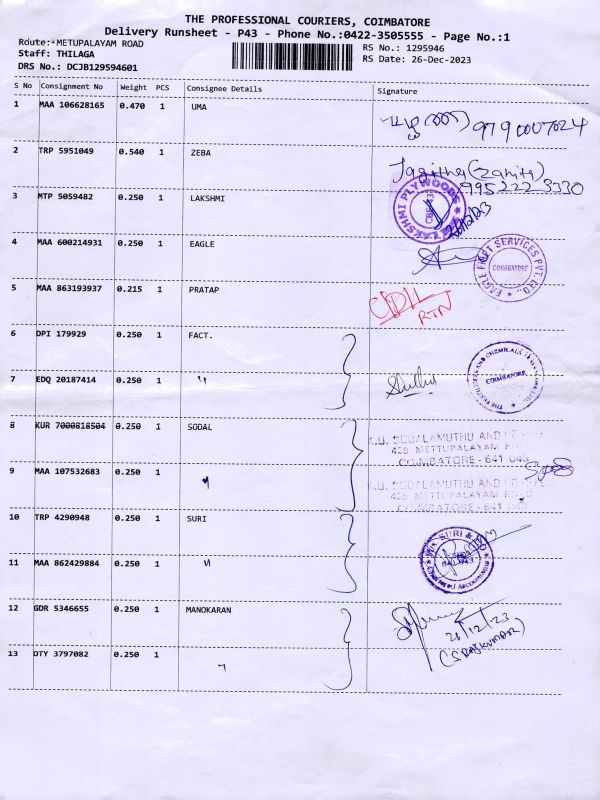 THE PROFESSIONAL COURIERS, COIMBATORE
Delivery Runsheet - P43 - Phone No.:0422-3505555 - Page No.:1
Route: METUPALAYAM ROAD
Staff: THILAGA
DRS No.: DCJB129594601
RS No.: 1295946
RS Date: 26-Dec-2023
S No Consignment No Weight PCS Consignee Details Signature
1 MAA 106628165 0.470 1 UMA
2 TRP 5951049 0.540 1 ZEBA
995222 3330
3 MTP 5059482 0.250 1 LAKSHMI
LAKSHMI PLYWOODS
26/12/23
4 MAA 600214931 0.250 1 EAGLE
EAGLE FLEET SERVICES PVT. LTD.,
COIMBATORE
5 MAA 863193937 0.215 1 PRATAP
RTN
6 DPI 179929 0.250 1 FACT.
COIMBATORE
7 EDQ 20187414 0.250 1 "
8 KUR 7000818504 0.250 1 SODAL
K.U. SODALAMUTHU AND
428 METTUPALAYAM
COIMBATORE - 641 043
9 MAA 107532683 0.250 1 "
K.U. SODALAMUTHU AND
428 METTUPALAYAM ROAD
COIMBATORE - 641 043
10 TRP 4290948 0.250 1 SURI
SURI & CO
11 MAA 862429884 0.250 1 "
12 GDR 5346655 0.250 1 MANOKARAN
26/12/23
(S. RAJKUMAR)
13 DTY 3797082 0.250 1 "